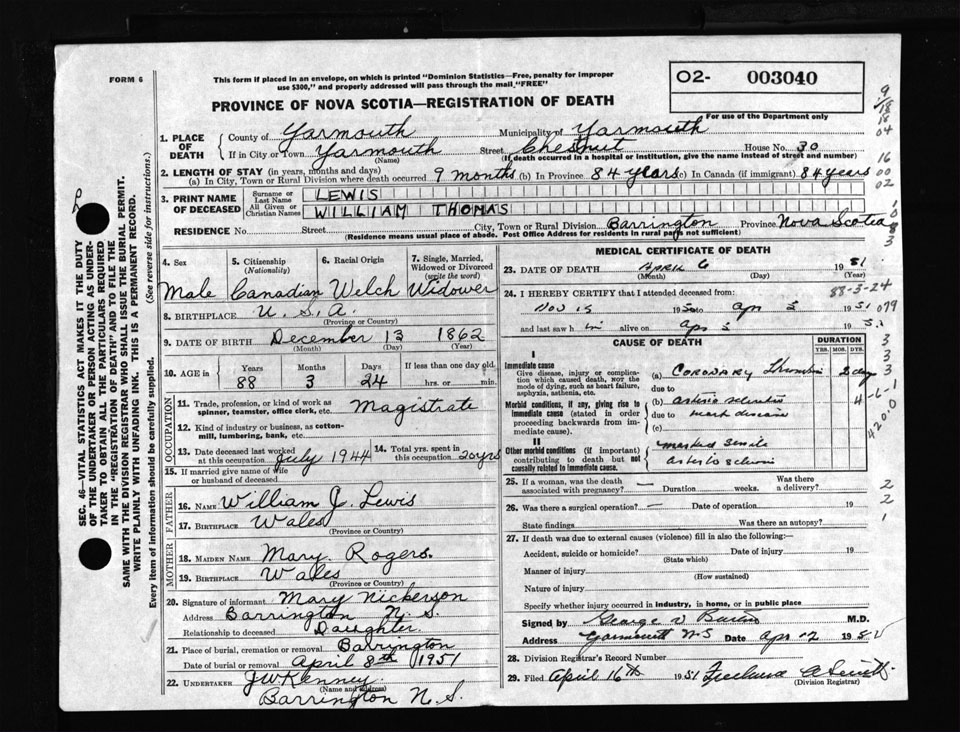 FORM 6
This form if placed in an envelope, on which is printed "Dominion Statistics—Free, penalty for improper
use $300," and properly addressed will pass through the mail "FREE"
O2- 003040
PROVINCE OF NOVA SCOTIA—REGISTRATION OF DEATH
For use of the Department only
1. PLACE OF DEATH
County of Yarmouth Municipality of Yarmouth
If in City or Town Yarmouth Street Chestnut House No. 30
(Name) (If death occurred in a hospital or institution, give the name instead of street and number)
2. LENGTH OF STAY (in years, months and days)
(a) In City, Town or Rural Division where death occurred 9 months (b) In Province 84 years (c) In Canada (if immigrant) 84 years
3. PRINT NAME OF DECEASED
Surname or Last Name LEWIS
All Given or Christian Names WILLIAM THOMAS
RESIDENCE No. Street City, Town or Rural Division Barrington Province Nova Scotia
(Residence means usual place of abode. Post Office Address for residents in rural parts not sufficient)
4. Sex
5. Citizenship (Nationality)
6. Racial Origin
7. Single, Married, Widowed or Divorced (write the word)
Male Canadian Welch Widower
8. BIRTHPLACE U.S.A.
(Province or Country)
9. DATE OF BIRTH December 13 1862
(Month) (Day) (Year)
10. AGE in Years Months Days If less than one day old
88 3 24 hrs. or min.
OCCUPATION
11. Trade, profession, or kind of work as spinner, teamster, office clerk, etc. Magistrate
12. Kind of industry or business, as cotton-mill, lumbering, bank, etc.
13. Date deceased last worked at this occupation July 1944
14. Total yrs. spent in this occupation 20 yrs
15. If married give name of wife or husband of deceased
FATHER
16. NAME William J. Lewis
17. BIRTHPLACE Wales
(Province or Country)
MOTHER
18. MAIDEN NAME Mary Rogers.
19. BIRTHPLACE Wales
(Province or Country)
20. Signature of informant Mary Nickerson
Address Barrington N. S.
Relationship to deceased Daughter.
21. Place of burial, cremation or removal Barrington
Date of burial or removal April 8th 1951
22. UNDERTAKER J W Kenney.
(Name and address)
Barrington N. S.
MEDICAL CERTIFICATE OF DEATH
23. DATE OF DEATH April 6 1951
(Month) (Day) (Year)
88-3-24
24. I HEREBY CERTIFY that I attended deceased from:
Nov 1950 to apr 1951
and last saw h im alive on apr 195
CAUSE OF DEATH
DURATION
YRS. MOS. DYS.
I
Immediate cause
Give disease, injury or complication which caused death, NOT the mode of dying, such as heart failure, asphyxia, asthenia, etc.
(a) Coronary Thrombosis 2 days
due to
Morbid conditions, if any, giving rise to immediate cause (stated in order proceeding backwards from immediate cause).
(b)
due to heart disease
(c)
II
Other morbid conditions (if important) contributing to death but not causally related to immediate cause.
marked senile
25. If a woman, was the death associated with pregnancy? — Duration weeks. Was there a delivery?
26. Was there a surgical operation? — Date of operation 19
State findings Was there an autopsy?
27. If death was due to external causes (violence) fill in also the following:—
Accident, suicide or homicide? Date of injury 19
(State which)
Manner of injury
(How sustained)
Nature of injury
Specify whether injury occurred in industry, in home, or in public place
Signed by George V M.D.
Address Yarmouth N S Date Apr 12 195
28. Division Registrar's Record Number
29. Filed April 16th 1951
(Division Registrar)
SEC. 46—VITAL STATISTICS ACT MAKES IT THE DUTY
OF THE UNDERTAKER OR PERSON ACTING AS UNDER-
TAKER TO OBTAIN ALL THE PARTICULARS REQUIRED
IN THE "REGISTRATION OF DEATH" AND TO FILE THE
SAME WITH THE DIVISION REGISTRAR WHO SHALL ISSUE THE BURIAL PERMIT.
WRITE PLAINLY WITH UNFADING INK. THIS IS A PERMANENT RECORD.
Every item of information should be carefully supplied.
(See reverse side for instructions.)